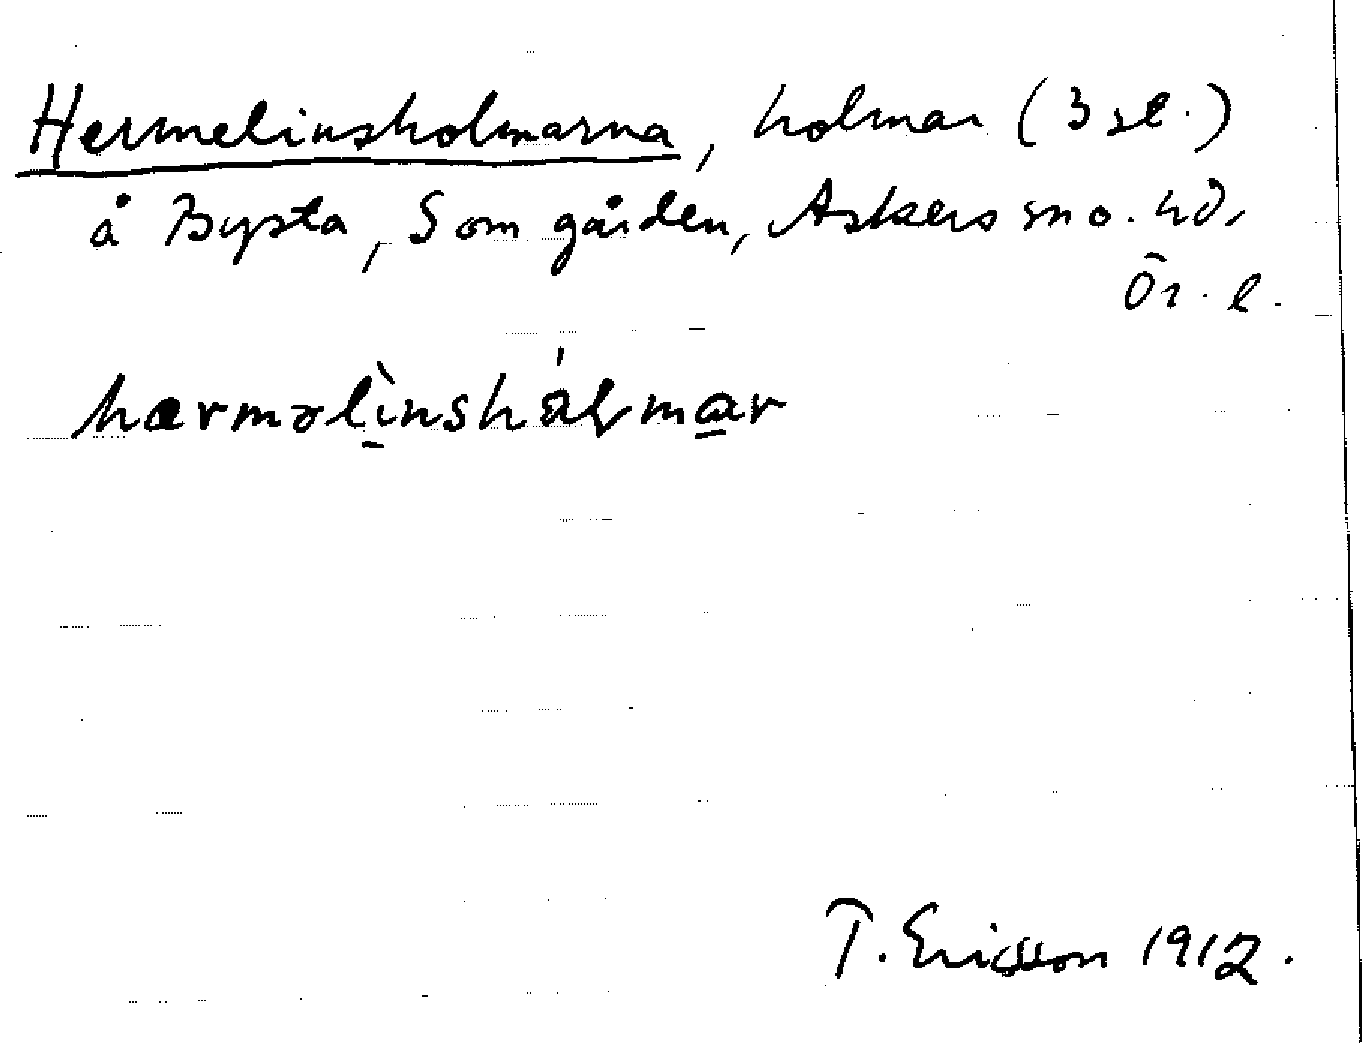 Hermelinsholmarna, holmar (3 st.)
å Bysta, S om gården, Askers sn o. hd,
Ör. l.
hærməlì̱nshá̵lma̱r
T. Ericsson 1912.